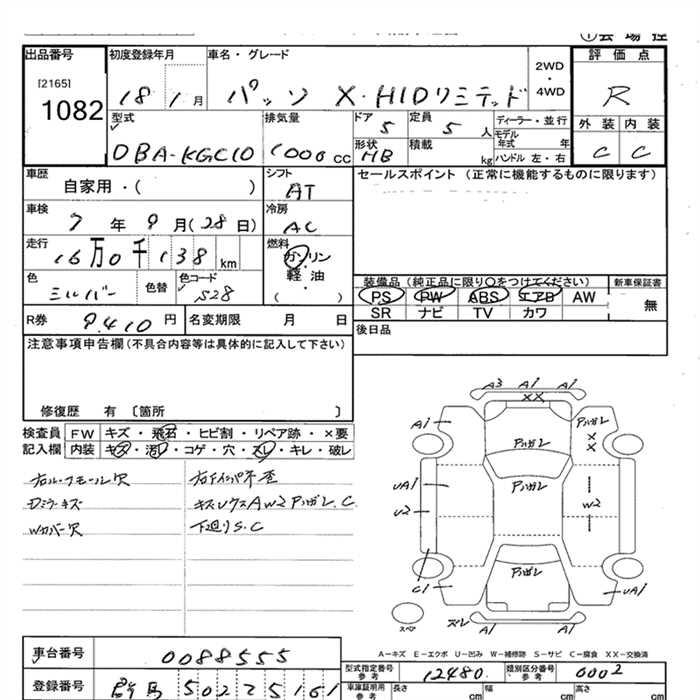 出品番号 初度登録年月 車名・グレード 評価点
[2165]
1082
18年1月 パッソ X・HIDリミテッド 2WD・4WD R
型式 排気量 ドア 定員 ディーラー・並行 外装 内装
DBA-KGC10 1000cc 5 5人 モデル年式 年 C C
形状 積載
HB kg ハンドル 左・右
車歴 シフト セールスポイント (正常に機能するものに限ります)
自家用・( ) AT
車検 冷房
7年9月(28日) AC
走行 燃料
16万0千138km ガソリン
軽油
( )
色 色替 色コード
シルバー S28
装備品 (純正品に限り○をつけてください) 新車保証書
PS PW ABS エアB AW 無
SR ナビ TV カワ
R券 9,410円 名変期限 月 日
後日品
注意事項申告欄(不具合内容等は具体的に記入して下さい)
修復歴 有 〔箇所 〕
検査員 FW キズ・飛石・ヒビ割・リペア跡・×要
記入欄 内装 キズ・汚れ・コゲ・穴・スレ・キレ・破レ
右ル・フモール欠
Dミラーキズ
Wカバー欠
キズUクスAW2Pハガレ.C
下廻りS.C
A3 A1 A1
XX
A1
Pハガレ
X
X
Pハガレ
Pハガレ
UA1
U2
W2
Pハガレ
C1
UA1
スペア
スレ
A1
A1
A-キズ E-エクボ U-凹み W-補修跡 S-サビ C-腐食 XX-交換済
車台番号 0088555
型式指定番号 参考 12480 類別区分番号 参考 0002
登録番号 群馬 502 25161
車庫証明用 参考 長さ cm 幅 cm 高さ cm